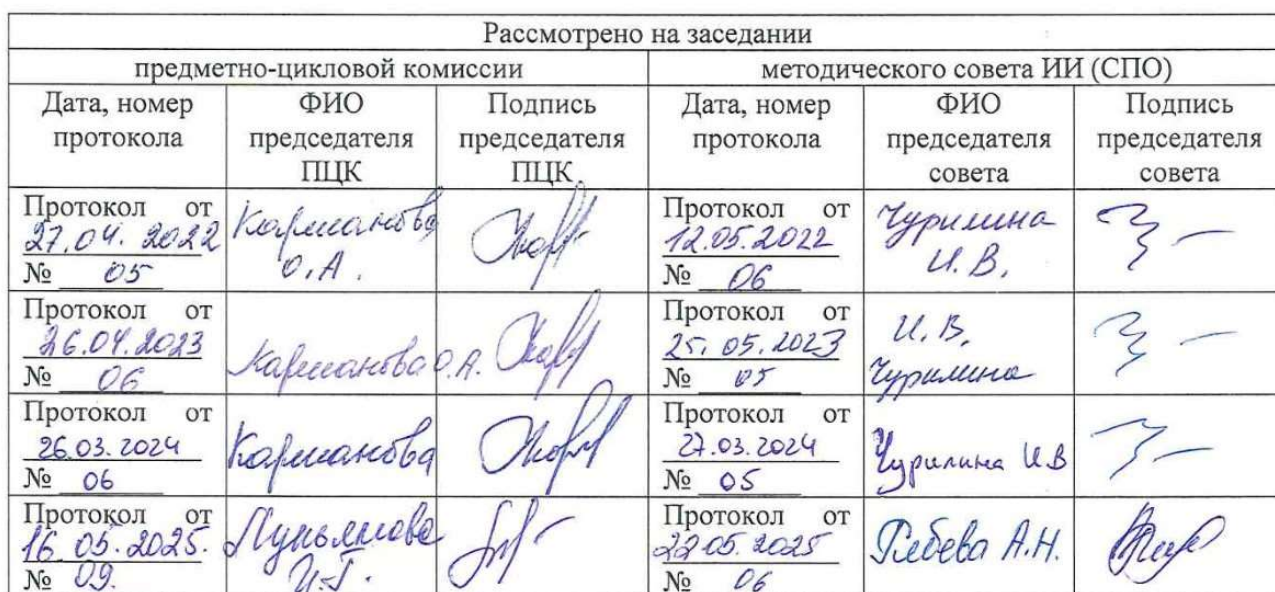 Рассмотрено на заседании
предметно-цикловой комиссии методического совета ИИ (СПО)
Дата, номер протокола
ФИО председателя ПЦК
Подпись председателя ПЦК
Дата, номер протокола
ФИО председателя совета
Подпись председателя совета
Протокол от
27.04.2022
№ 05
Карманова
О.А.
Протокол от
12.05.2022
№ 06
Чурилина
И.В.
Протокол от
26.04.2023
№ 06
Карманова О.А.
Протокол от
25.05.2023
№ 05
И.В.
Чурилина
Протокол от
26.03.2024
№ 06
Карманова
Протокол от
27.03.2024
№ 05
Чурилина И.В
Протокол от
16.05.2025.
№ 09.
И.Г.
Протокол от
22.05.2025
№ 06
А.Н.